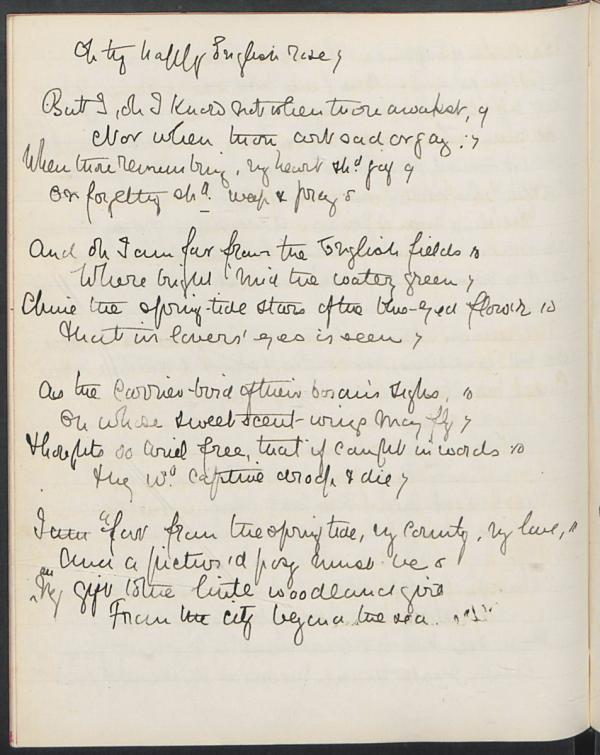 On thy happy English rose,
But I, oh I know not when thou awakest,
Nor when thou art sad or gay;
When thou remembring, my heart shd. gay
Or forgetting shd. weep & pray
And oh I am far from the English fields
Where bright 'mid the water green,
Shine the spring-tide stars of the blue-eyed flower
That in lovers' eyes is seen,
As the Carrier-bird of their bosom's sighs,
On whose sweet scent-wings may fly
Thoughts so Ariel free, that if caught in words
They wd. captive droop & die,
I am "far from the spring tide, my country, my love,"
And a pictur'd posy must be
My gift to the little woodland girl
From the city beyond the sea.